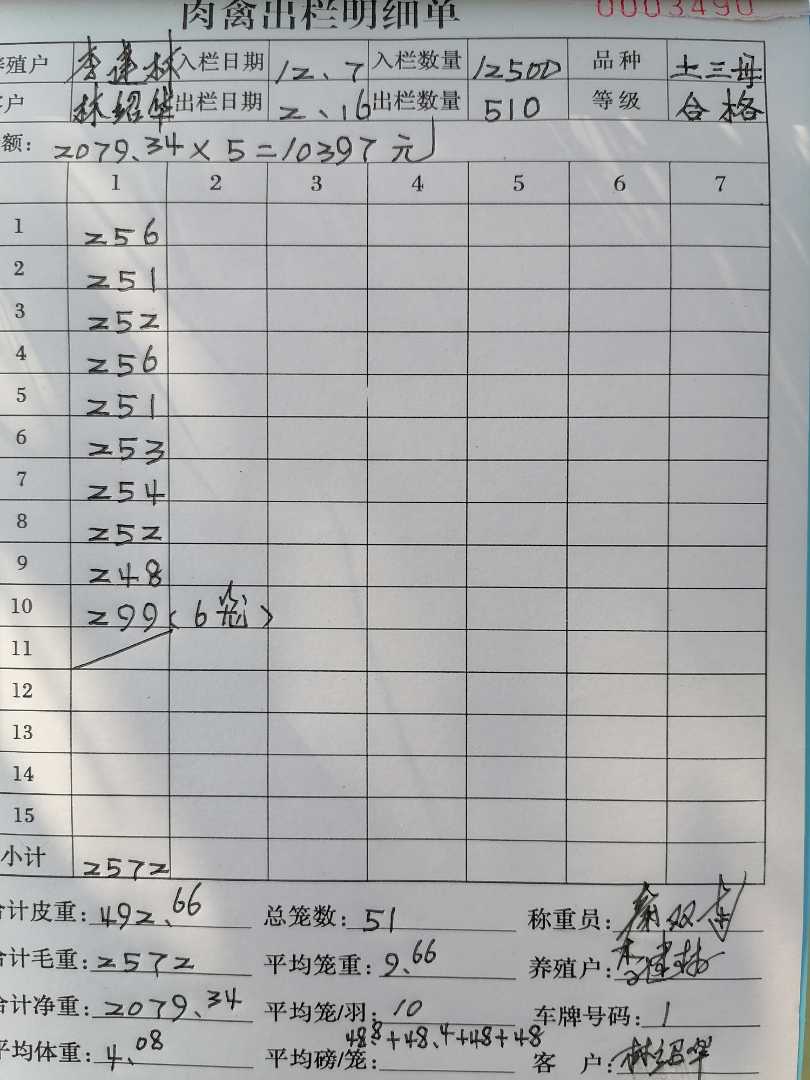 肉禽出栏明细单 0003490
养殖户 李建林 入栏日期 12、7 入栏数量 12500 品种 土三母
客户 林绍华 出栏日期 2、16 出栏数量 510 等级 合格
额: 2079.34×5=10397元
1 2 3 4 5 6 7
1 256
2 251
3 252
4 256
5 251
6 253
7 254
8 252
9 248
10 299(6笼)
11
12
13
14
15
小计 2572
合计皮重: 492.66 总笼数: 51 称重员:
合计毛重: 2572 平均笼重: 9.66 养殖户: 李建林
合计净重: 2079.34 平均笼/羽: 10 车牌号码: 1
平均体重: 4.08 平均磅/笼: 488+48.4+48+48 客户: 林绍华